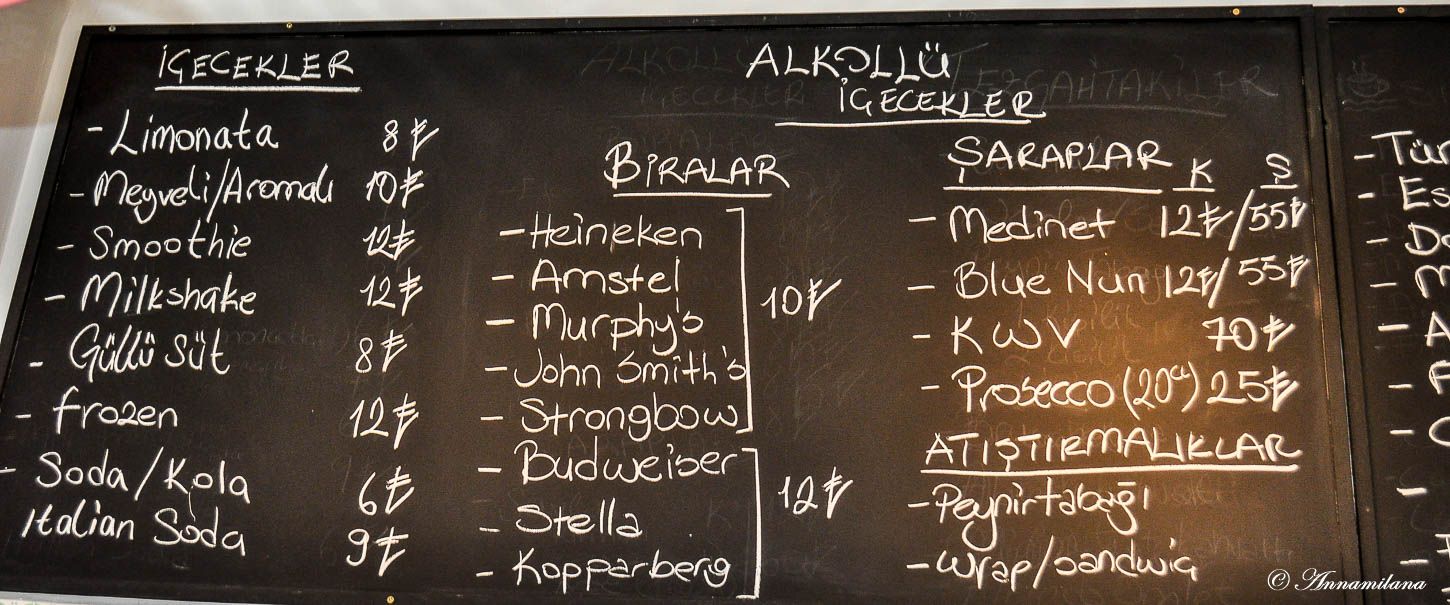 İÇECEKLER
- Limonata 8₺
- Meyveli/Aromalı 10₺
- Smoothie 12₺
- Milkshake 12₺
- Güllü Süt 8₺
- frozen 12₺
- Soda/Kola 6₺
Italian Soda 9₺
ALKOLLÜ
İÇECEKLER
BİRALAR
- Heineken
- Amstel
- Murphy's
- John Smith's
- Strongbow
10₺
- Budweiser
- Stella
- Kopparberg
12₺
ŞARAPLAR K Ş
- Medinet 12₺/55₺
- Blue Nun 12₺/55₺
- KWV 70₺
- Prosecco (20cl) 25₺
ATIŞTIRMALIKLAR
- Peynir tabağı
- Wrap/sandwiç
- Tür
- Es
© Annamilana